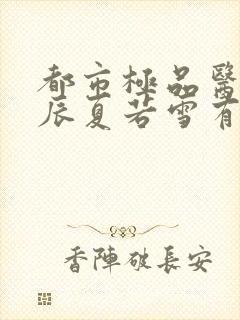 都市極品醫
辰夏若雪有
香陣破長安